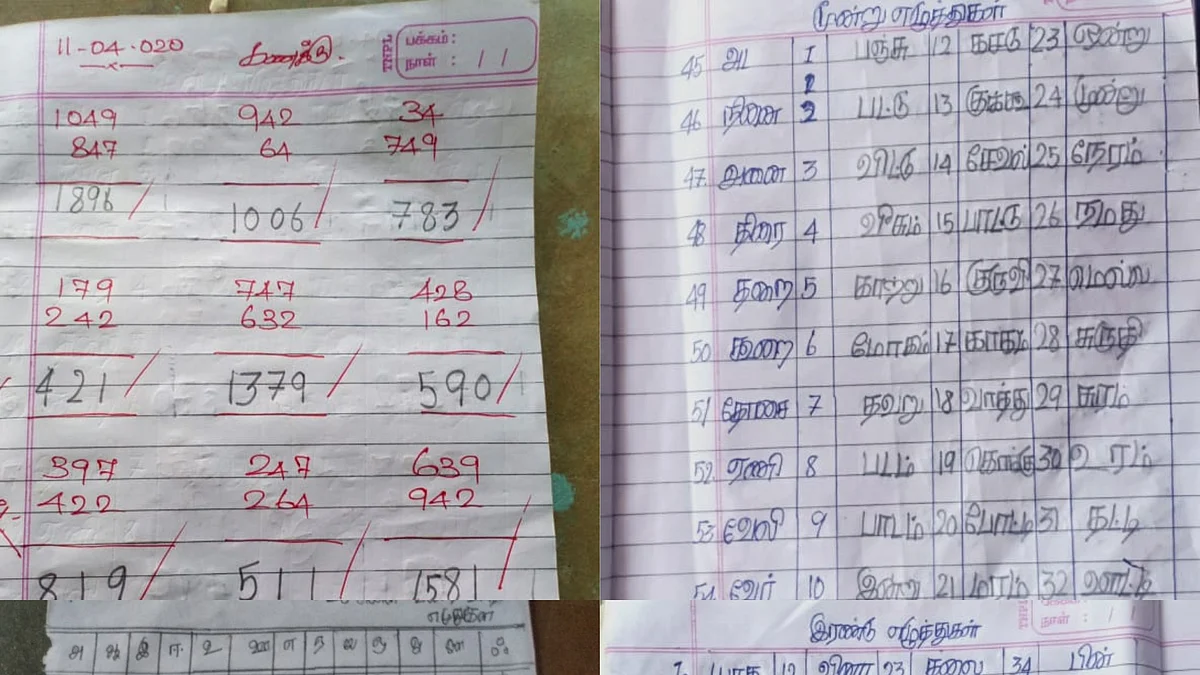 11-04-020 கணக்கு.
பக்கம் :
நாள் : / /
TNPL
1049 942 34
847 64 749
1896 1006 783
179 747 428
242 632 162
421 1379 590
397 247 639
422 264 942
819 511 1581
எழுத்துகள்
அ ஆ இ ஈ உ ஊ எ ஏ ஐ ஒ ஓ ஔ ஃ
மூன்று எழுத்துகள்
45 1 பஞ்சு 12 23 ஒன்று
2
46 2 பட்டு 13 24 மூன்று
47. 3 14 சேவல் 25 நேரம்
48 திரை 4 15 பாட்டு 26 நமது
49 தரை 5 காற்று 16 குருவி 27
50 6 17 காகம் 28 சுருதி
51 தோசை 7 தவறு 18 வாத்து 29 கரம்
52. ஏணி 8 படம் 19 30 உரம்
53 9 பாடம் 20 போட்டி 31 தட்டி
54 வேர் 10 இன்று 21 மரம் 32
இரண்டு எழுத்துகள்
நாள் : 1
12 23 தலை 34 பின்